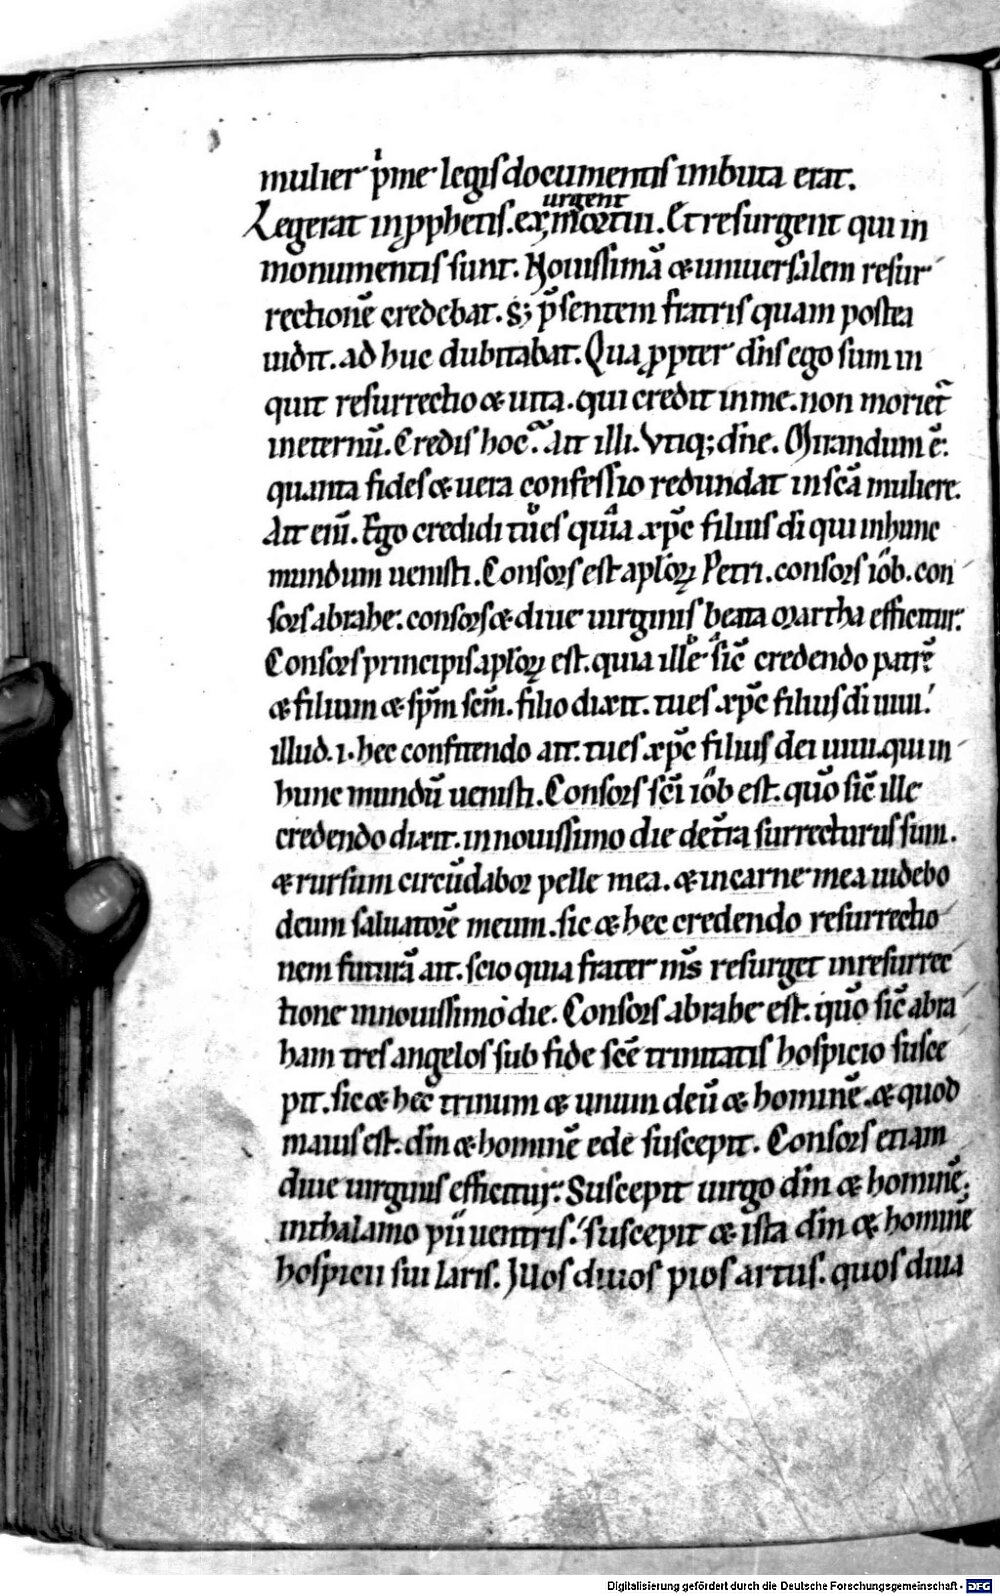 mulier pͥme legis documentis imbuta erat.
Legerat in ꝓphetis. ex urgent mortui. Et resurgent qui in
monumentis sunt. Nouissimā & uniuersalem resur
rectionē credebat. sꝫ p̄sentem fratris quam postea
uidit. ad huc dubitabat. Qua ꝓpter dn̄s ego sum in
quit resurrectio & uita. qui credit in me. non morietᷣ
in eternū. Credis hoc? Ait illi. Vtiqꝫ dn̄e. Mirandum ē:
quanta fides & uera confessio redundat in scā muliere.
Ait eni. Ego credidi tu es quia xp̄c filius di qui in hunc
mundum uenisti. Consors est apl̄oꝝ Petri. consors iōb. con
sors abrahe. consors & diue uirginis beata martha efficitur.
Consors principis apl̄oꝝ est. quia ille sic̄ credendo patrē
& filium & sp̄m sc̄m. filio dixit. tu es xp̄c filius di uiui.
illud. i. hec confitendo ait. tu es xp̄c filius dei uiui. qui in
hunc mundū uenisti. Consors sc̄i iōb est. quō sic̄ ille
credendo dixit. in nouissimo die de tr̄a surrecturus sum.
& rursum circūdabor pelle mea. & in carne mea uidebo
deum saluatorē meum. sic & hec credendo resurrectio
nem futurā ait. scio quia frater ms̄ resurget in resurrec
tione in nouissimo die. Consors abrahe est. quō sic̄ abra
ham tres angelos sub fide scē trinitatis hospicio susce
pit. sic & hec trinum & unum deū & hominē. & quod
maius est. dm̄ & hominē ede suscepit. Consors etiam
diue uirginis efficitur. Suscepit uirgo dm̄ & hominē.
in thalamo pii uentris. suscepit & ista dm̄ & hominē
hospicii sui laris. Illos diuos pios artus. quos diua
Digitalisierung gefördert durch die Deutsche Forschungsgemeinschaft - DFG